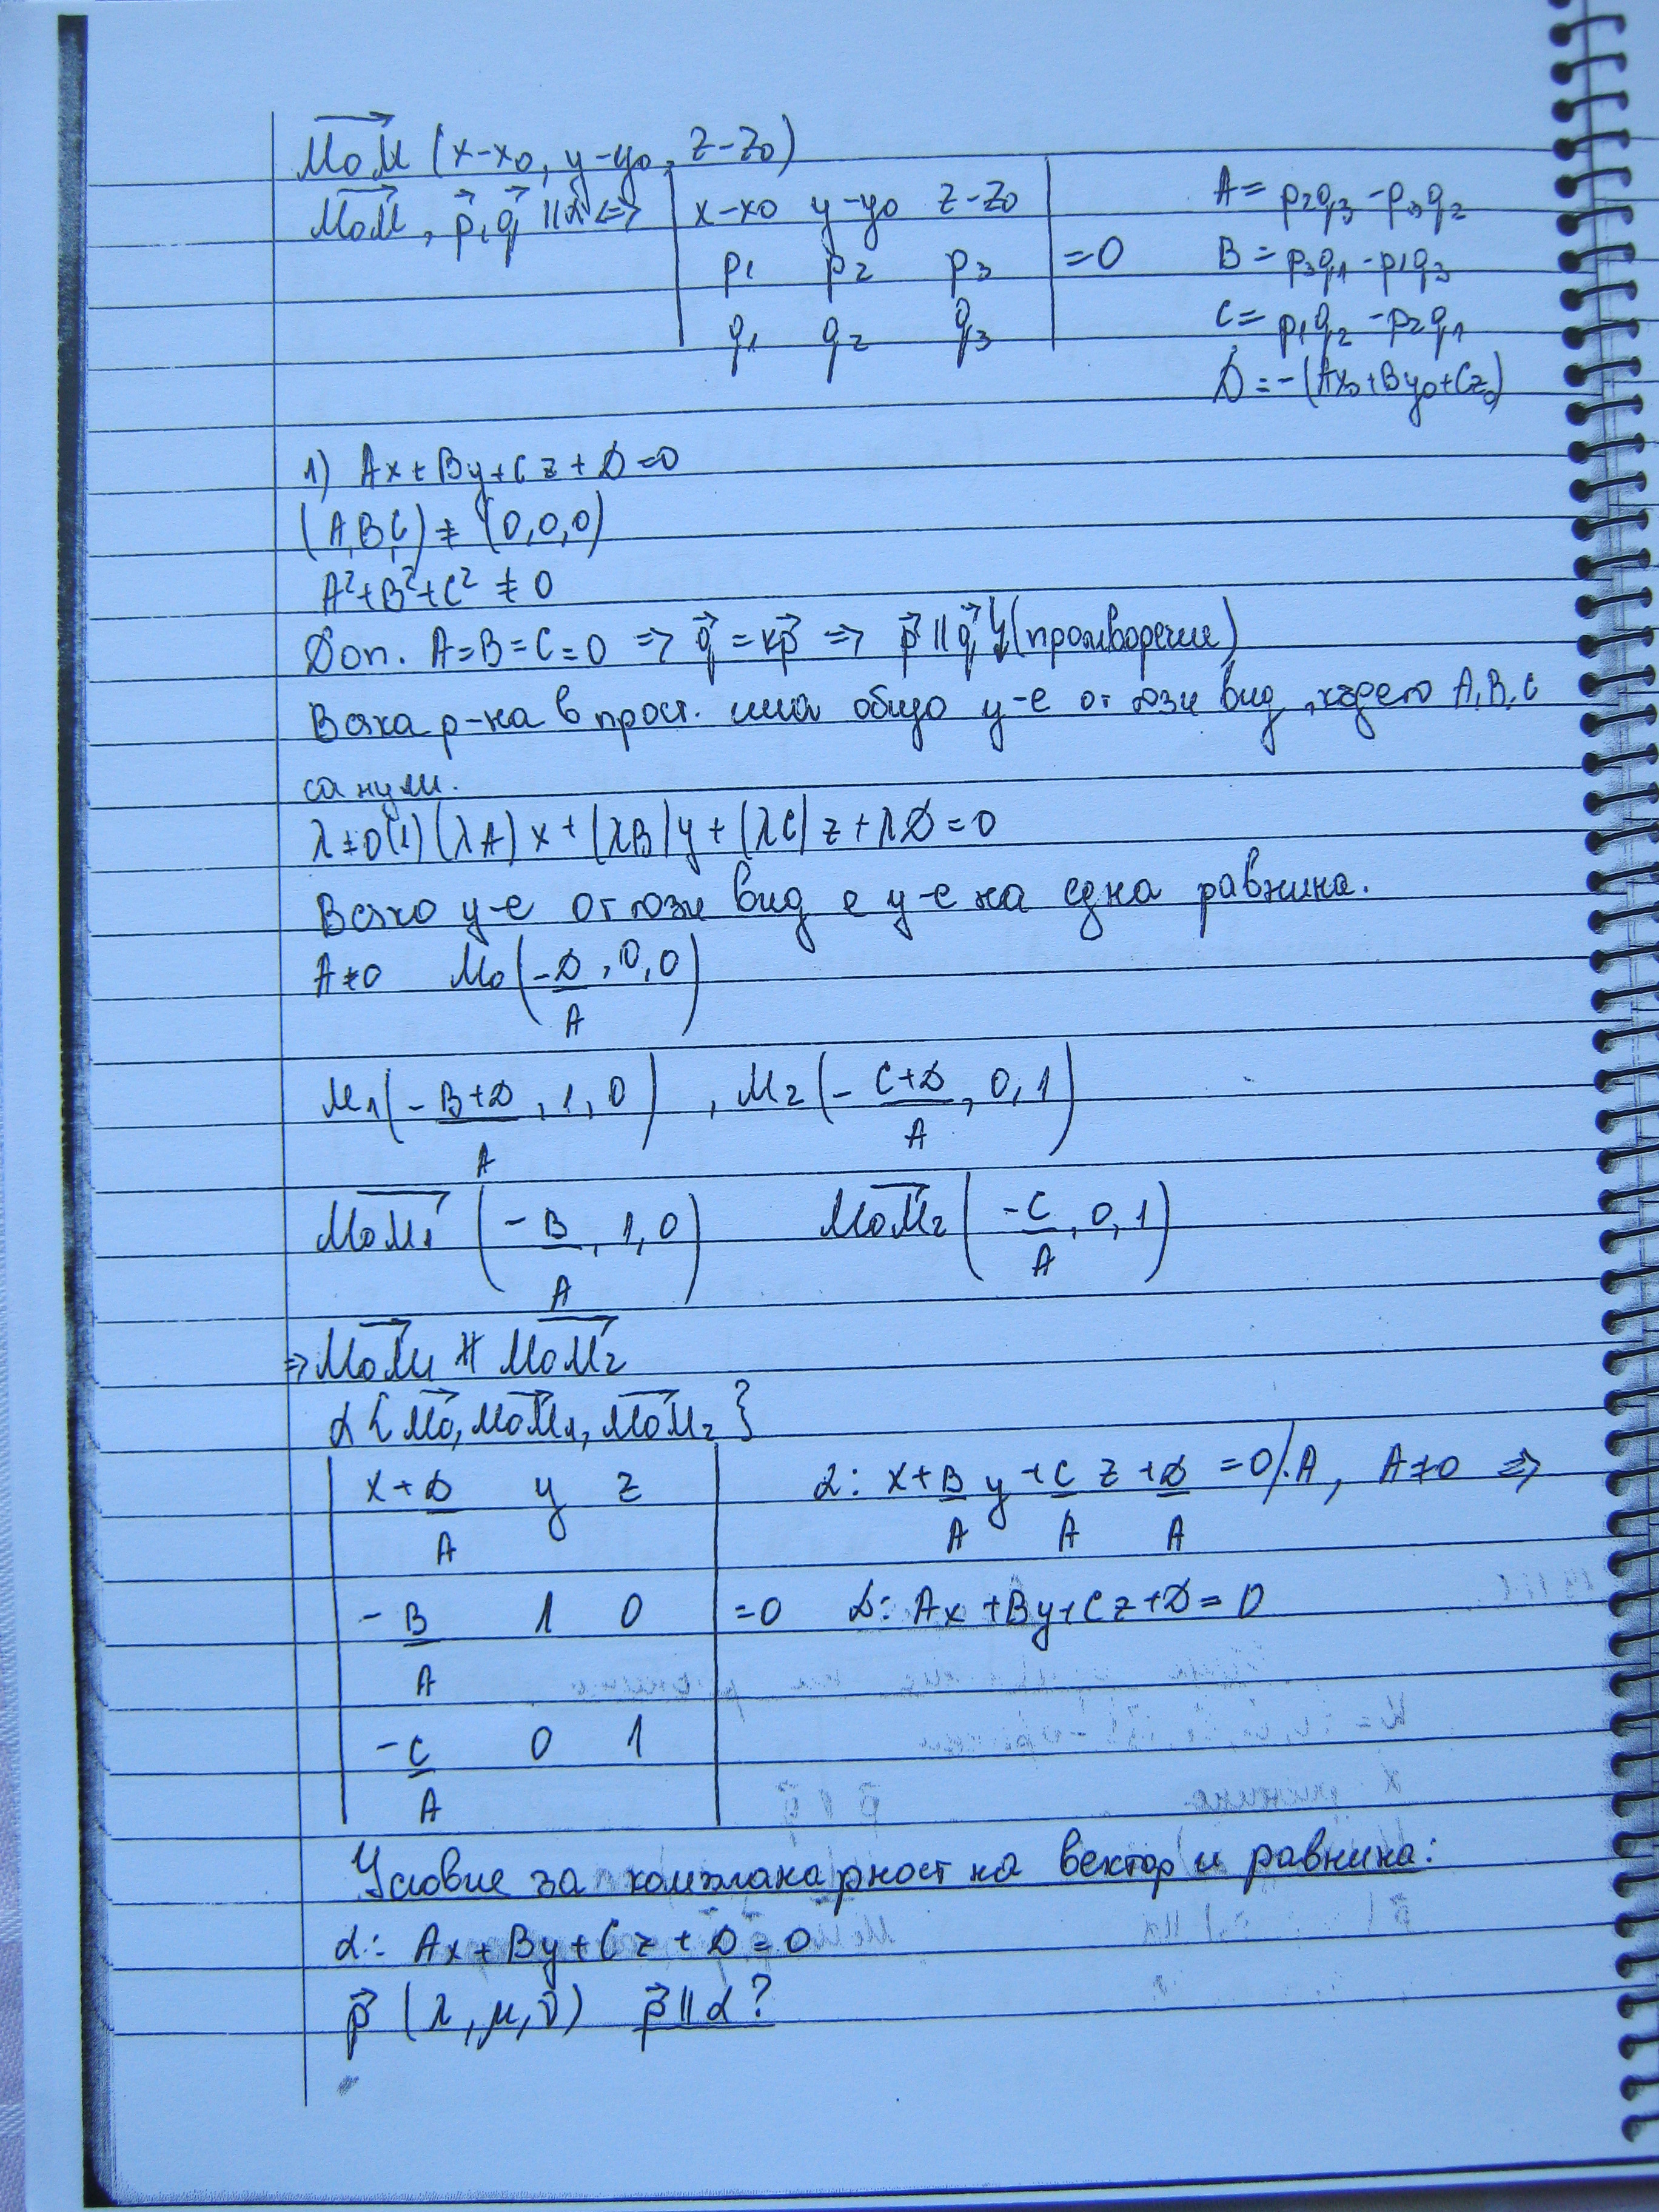 M₀M→ (x-x₀, y-y₀, z-z₀)
M₀M→, p→, q→ || α <=> | x-x₀ y-y₀ z-z₀ |
p₁ p₂ p₃ | =0
q₁ q₂ q₃
A = p₂q₃ - p₃q₂
B = p₃q₁ - p₁q₃
C = p₁q₂ - p₂q₁
D = -(Ax₀+By₀+Cz₀)
1) Ax+By+Cz+D=0
(A,B,C) ≠ (0,0,0)
A²+B²+C² ≠ 0
Доп. A=B=C=0 => q→ = kp→ => p→ || q→ (противоречие)
Всяка р-на в прост. има общо у-е от този вид, където A,B,C
са нули.
λ≠0 (1) (λA)x+(λB)y+(λC)z+λD=0
Всяко у-е от този вид е у-е на една равнина.
A≠0 M₀(-D/A, 0, 0)
M₁(-B+D/A, 1, 0), M₂(-C+D/A, 0, 1)
M₀M₁→ (-B/A, 1, 0) M₀M₂→ (-C/A, 0, 1)
=> M₀M₁→ ∦ M₀M₂→
α {M₀→, M₀M₁→, M₀M₂→}
| x+D/A y z |
| -B/A 1 0 | =0
| -C/A 0 1 |
α: x+B/A y+C/A z+D/A =0/.A, A≠0 =>
α: Ax+By+Cz+D=0
Условие за компланарност на вектор и равнина:
α: Ax+By+Cz+D=0
p→ (λ,μ,ν) p→||α?